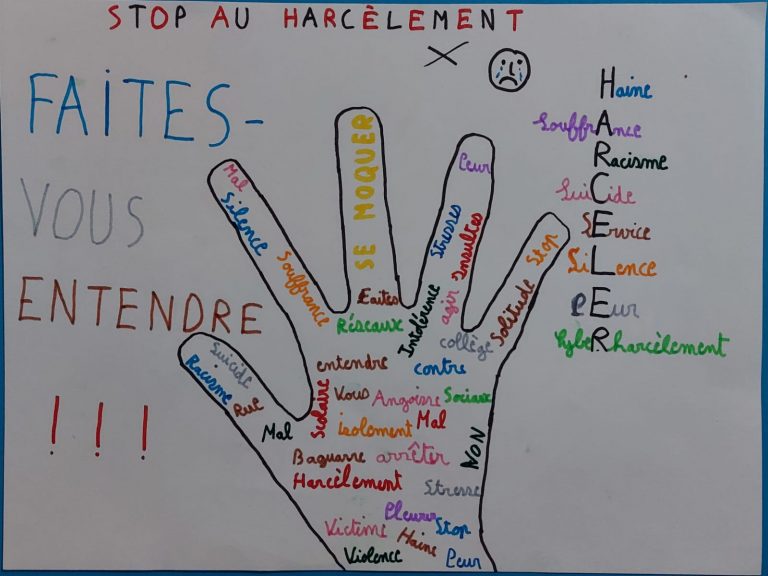 STOP AU HARCÈLEMENT
FAITES-
VOUS
ENTENDRE
! ! !
Haine
SouffrAnce
Racisme
SuiCide
SErvice
SiLence
PEur
CybeRharcèlement
Mal
Silence
Souffrance
SE MOQUER
Peur
Stresses
Insultes
Stop
Solitude
Suicide
Racisme
Rue
Faites
Réseaux
Intolérence
agir
collège
entendre
contre
Scolaire
Vous
Angoisse
Sociaux
Mal
isolement
Mal
NON
Baguarre
arrêter
Harcèlement
Stresse
Pleurer
Victime
Haine
Stop
Violence
Peur